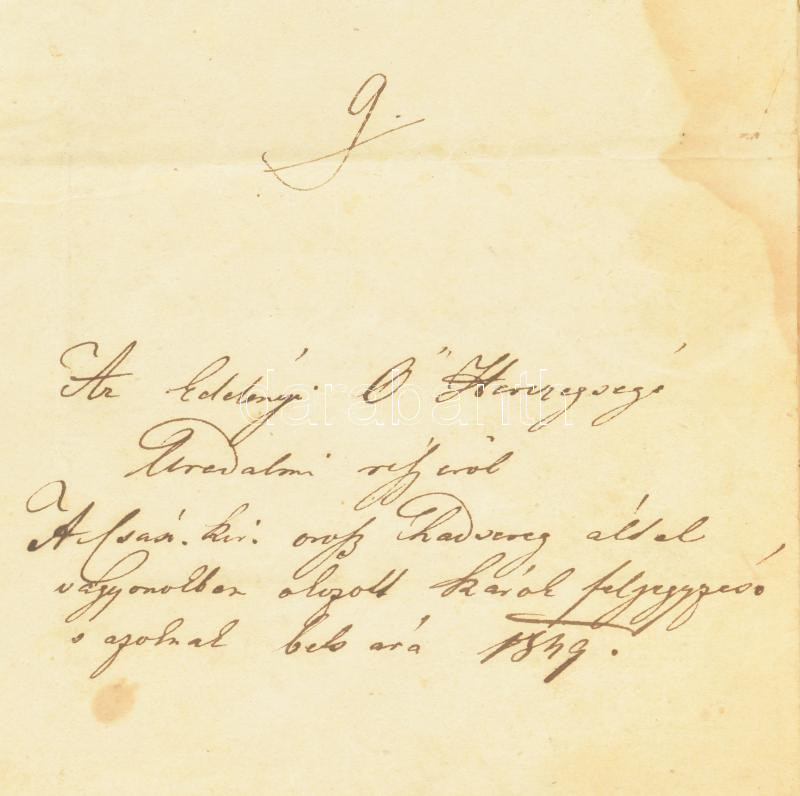 9.
Az Edelényi Ő Herczegsegé
Uredalmi réſzeröl
A Csás. kir. oroſz hadsereg által
vagyonokban okozott károk feljegyzesé
s azoknak bels ará 1849.
darabanth